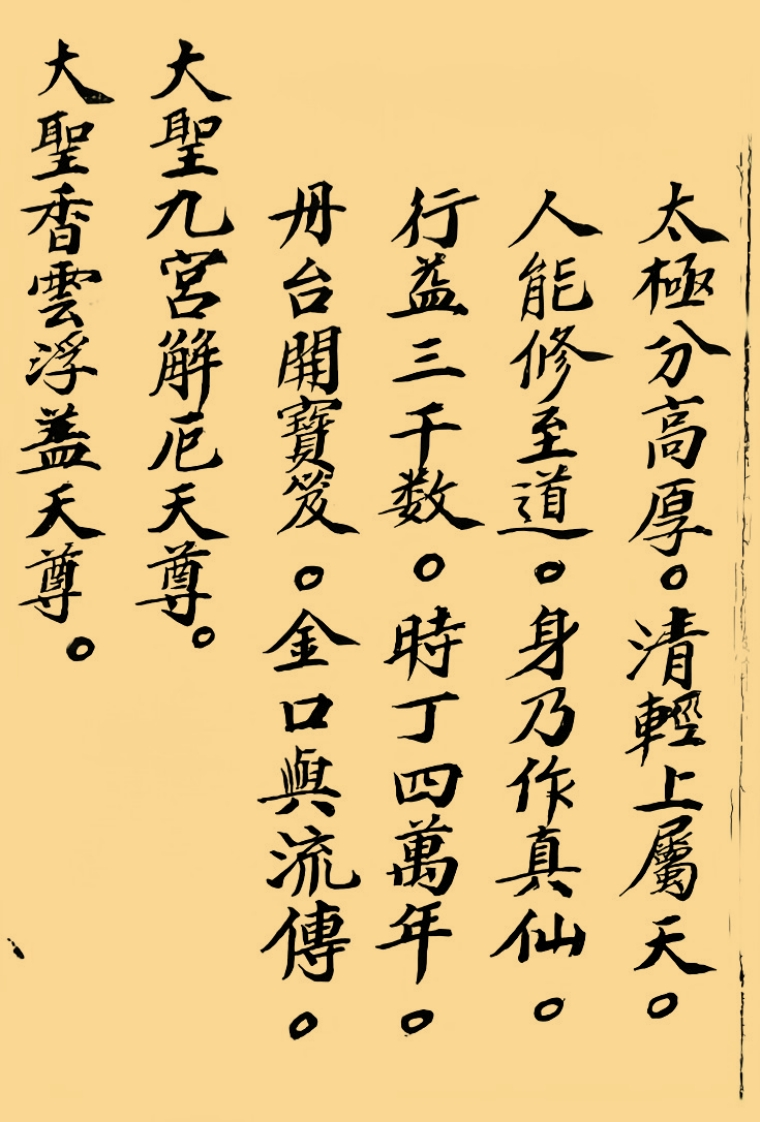 太極分高厚。清輕上屬天。
人能修至道。身乃作真仙。
行益三千数。時丁四萬年。
丹台開寶笈。金口與流傳。
大聖九宮解厄天尊。
大聖香雲浮蓋天尊。